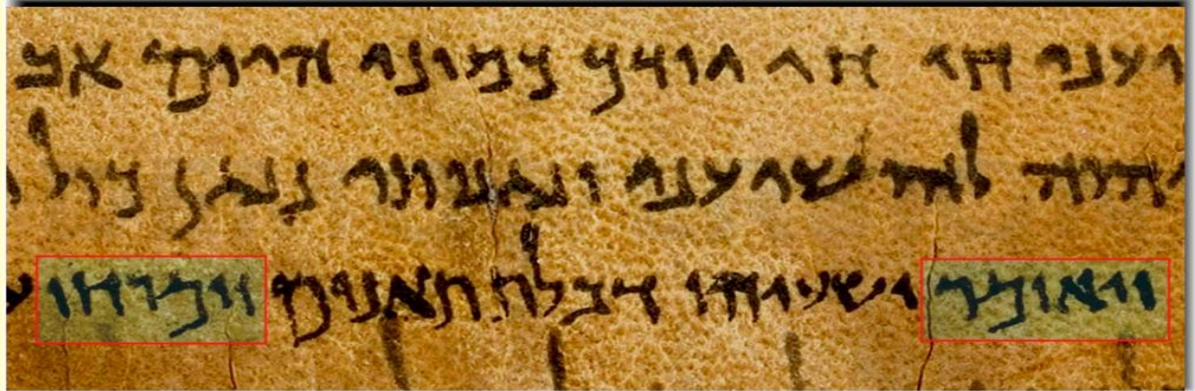 ועני חי חי יודך כמוני היום אב
יהוה להושיעני ונגינותי נגן כול
ויאומר ישעיהו דבלת תאנים וימרחו